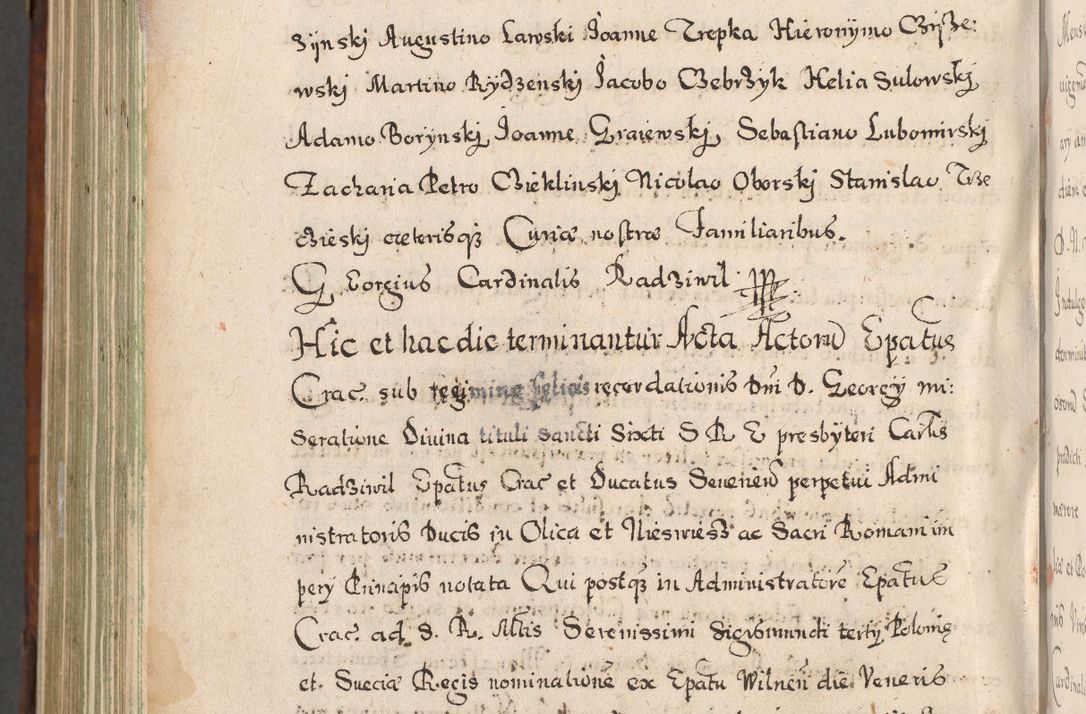 zijnskj Augustino Lawski Joanne Trepka Hieronymo Czisze:
wskj Martino Rydzenskj Jacobo Czebrzyk Helia Sulowskj
Adamo Borynskj Joanne Graiewskj, Sebastiano Lubomirskj
Zacharia Petro Czieklinskj Nicolao Oborskj Stanislao Trze
czieskj cæterisq3 Curiæ nostræ Familiaribus.
Georgius Cardinalis Radziwil
Hic et hac die terminantur Acta Actorū Epatus
Crac. sub regimine felicis recordationis Dni D. Georgij mi:
seratione Divina tituli sancti Sixti S R E presbyteri Carlis
Radziwil Epatus Crac et Ducatus Severień perpetui Admi
nistratoris Ducis in Olica et Nieswiesz ac Sacri Romani im
perij Principis notata Qui postq3 in Administratorē Epatus
Crac. ad S. R. Mtis Serenissimi Sigismundi tertij Poloniæ
et Sueciæ Regis nominationē ex Epatu Wilneń die Veneris